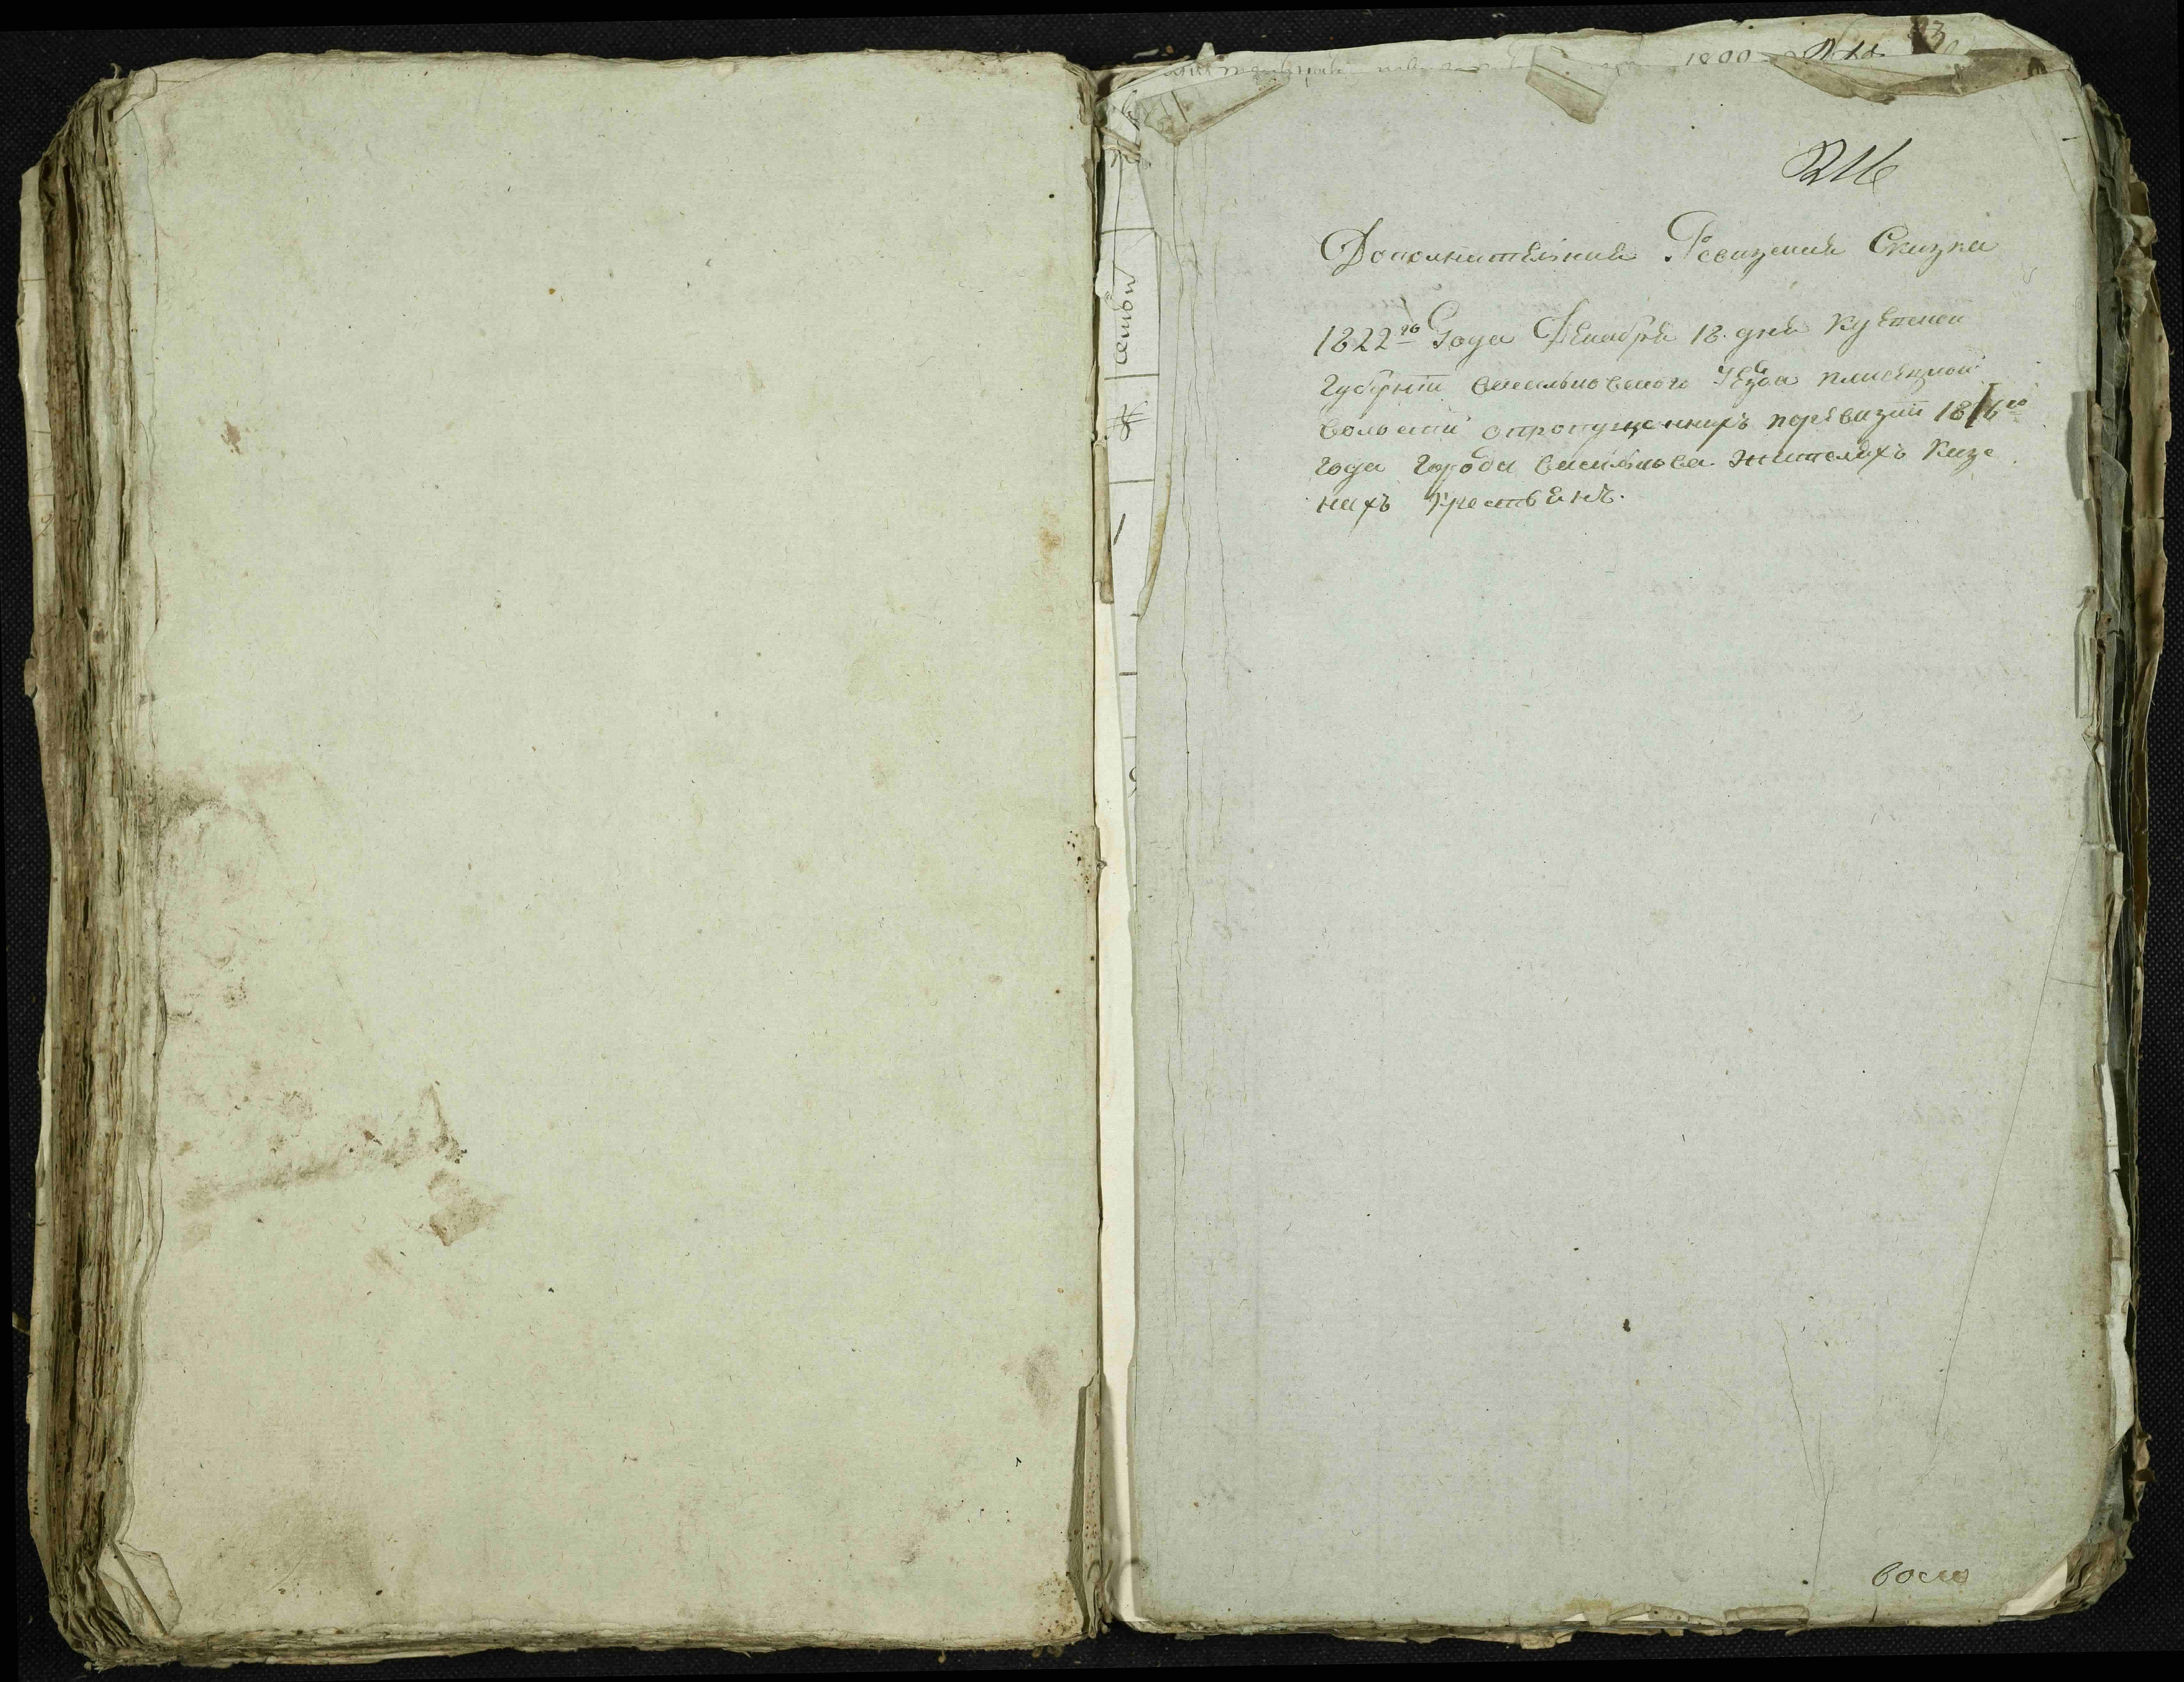 1800
216
Дополнительная Ревизская Сказка
1822го Года Декабря 18. дня Киевской
Губернии Васильковского уезда плисецкой
волости опропущенныхъ поревизии 1816го
года города Василькова жителяхъ Казе
ныхъ Крестьянъ.